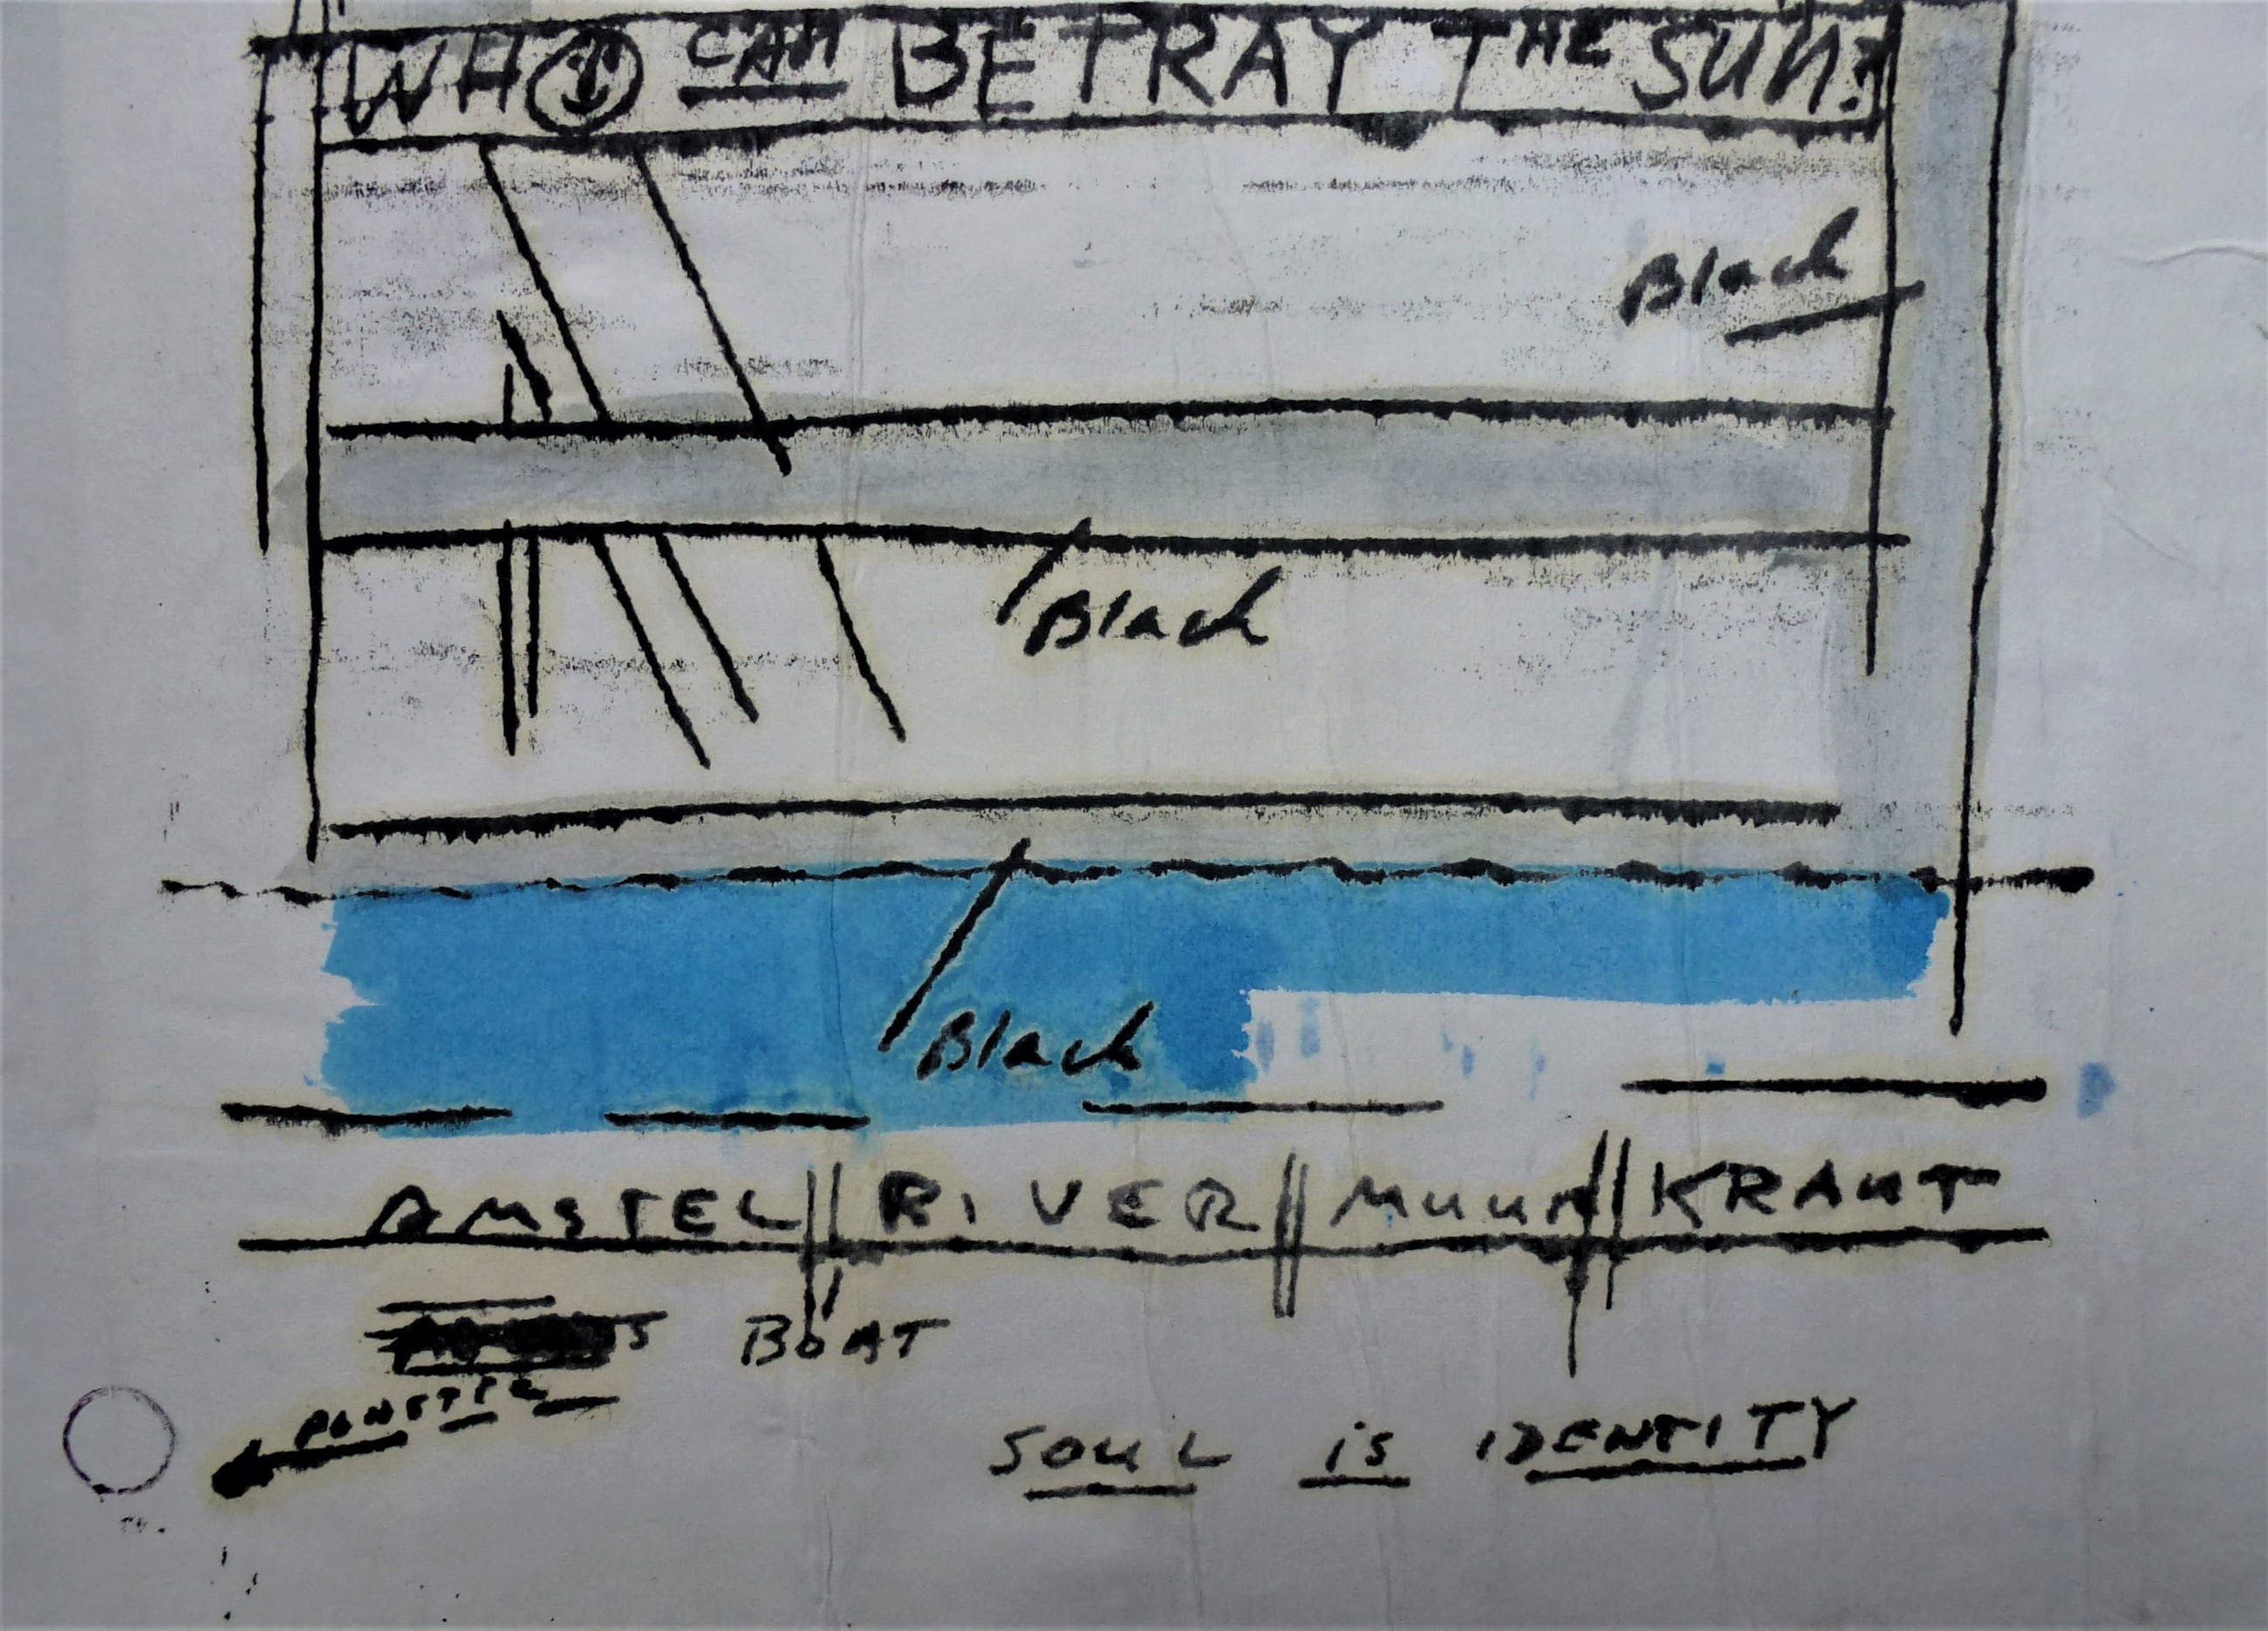 WHO CAN BETRAY THE SUN?
Black
Black
Black
AMSTEL RIVER MUUR KRANT
BOAT
SOUL is IDENTITY